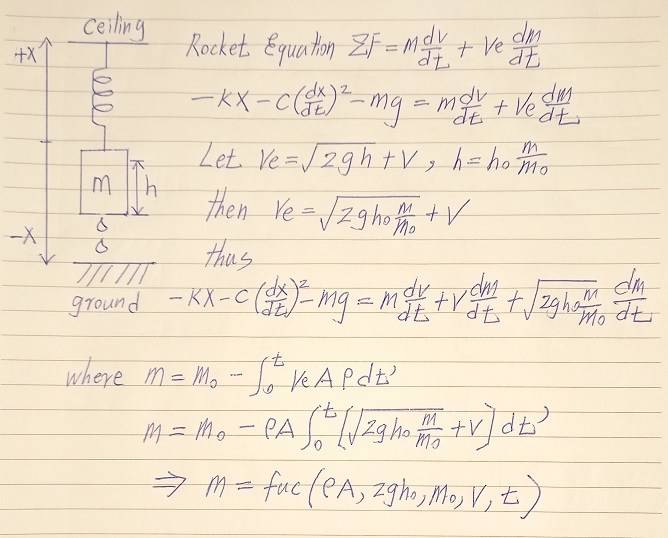 ceiling
Rocket Equation ΣF = m dv/dt + Ve dm/dt
+X
-KX - C(dx/dt)² - mg = m dv/dt + Ve dm/dt
Let Ve = √2gh + V, h = h₀ m/m₀
m
h
then Ve = √2gh₀ m/m₀ + V
-X
thus
ground
-KX - C(dx/dt)² - mg = m dv/dt + V dm/dt + √2gh₀ m/m₀ dm/dt
where m = m₀ - ∫₀ᵗ Ve A ρ dt'
m = m₀ - ρA ∫₀ᵗ [√2gh₀ m/m₀ + V] dt'
⇒ m = fuc(ρA, 2gh₀, m₀, V, t)